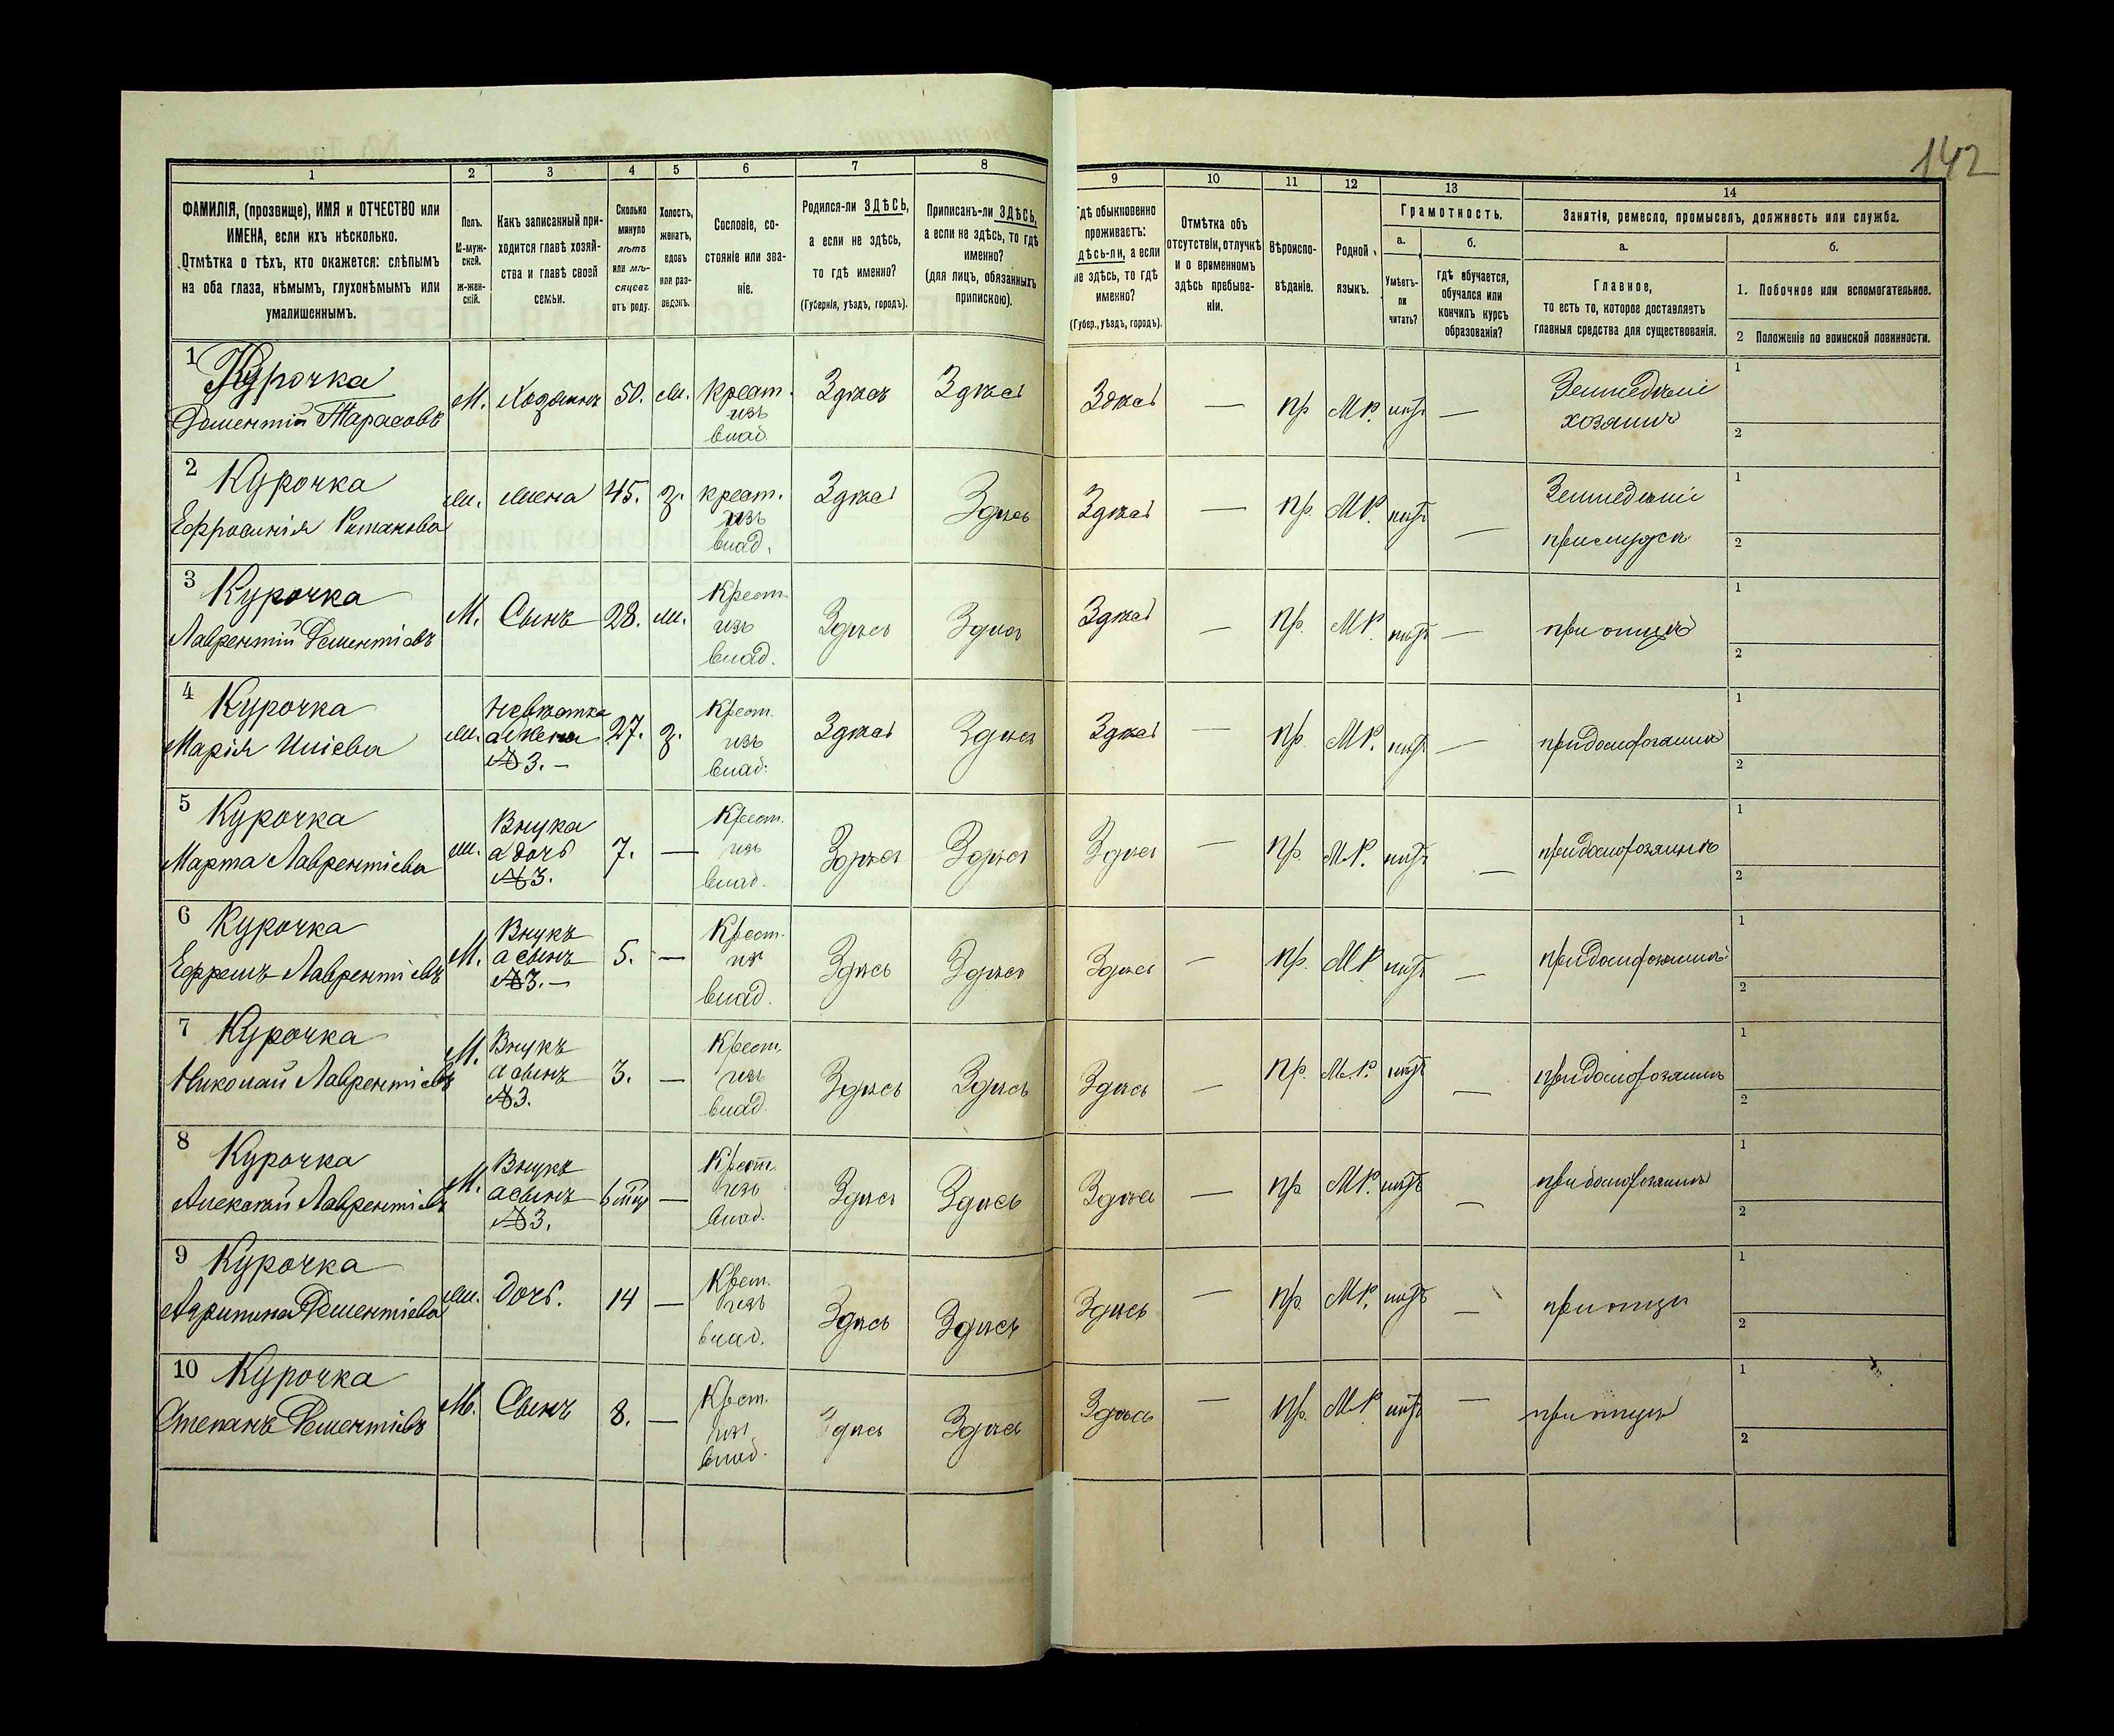 142
1
2
3
4
5
6
7
8
9
10
11
12
13
14
ФАМИЛІЯ, (прозвище), ИМЯ и ОТЧЕСТВО или
ИМЕНА, если ихъ нѣсколько.
Отмѣтка о тѣхъ, кто окажется: слѣпымъ
на оба глаза, нѣмымъ, глухонѣмымъ или
умалишеннымъ.
Полъ.
М-муж-
ской.
Ж-жен-
скій.
Какъ записанный при-
ходится главѣ хозяй-
ства и главѣ своей
семьи.
Сколько
минуло
лѣтъ
или мѣ-
сяцевъ
отъ роду.
Холостъ,
женатъ,
вдовъ
или раз-
веденъ.
Сословіе, со-
стояніе или зва-
ніе.
Родился-ли ЗДѢСЬ,
а если не здѣсь,
то гдѣ именно?
(Губернія, уѣздъ, городъ).
Приписанъ-ли ЗДѢСЬ,
а если не здѣсь, то гдѣ
именно?
(для лицъ, обязанныхъ
припискою).
Гдѣ обыкновенно
проживаетъ:
здѣсь-ли, а если
не здѣсь, то гдѣ
именно?
(Губер., уѣздъ, городъ).
Отмѣтка объ
отсутствіи, отлучкѣ
и о временномъ
здѣсь пребыва-
ніи.
Вѣроиспо-
вѣданіе.
Родной
языкъ.
Грамотность.
а.
Умѣетъ-
ли
читать?
б.
гдѣ обучается,
обучался или
кончилъ курсъ
образованія?
Занятіе, ремесло, промыселъ, должность или служба.
а.
Главное,
то есть то, которое доставляетъ
главныя средства для существованія.
б.
1. Побочное или вспомогательное.
2 Положеніе по воинской повинности.
1 Курочка
Дементій Тарасовъ
М. Хозяинъ 50. ж. крест. изъ влад. Здѣсь Здѣсь Здѣсь — пр МР. нѣтъ — Земледѣліе хозяинъ
1
2
2 Курочка
Ефросинія
ж. жена 45. з. крест. изъ влад. Здѣсь Здѣсь Здѣсь — пр. МР. нѣтъ — Земледѣліе
1
2
3 Курочка
Лаврентій Дементіевъ
М. Сынъ 28. ж. Крест. изъ влад. Здѣсь Здѣсь Здѣсь — пр. МР. нѣтъ — при отцѣ
1
2
4 Курочка
Марія Иліева
ж. Невѣстка а жена №3. — 27. з. Крест. изъ влад. Здѣсь Здѣсь Здѣсь — пр. МР. нѣтъ —
1
2
5 Курочка
Марта Лаврентіева
ж. Внука а дочь №3. 7. — Крест. изъ влад. Здѣсь Здѣсь Здѣсь — пр. МР. нѣтъ —
1
2
6 Курочка
Ефремъ Лаврентіевъ
М. Внукъ а сынъ №3. — 5. — Крест. изъ влад. Здѣсь Здѣсь Здѣсь — пр. МР нѣтъ —
1
2
7 Курочка
Николай Лаврентіевъ
М. Внукъ а сынъ №3. 3. — Крест. изъ влад. Здѣсь Здѣсь Здѣсь — пр. МР. нѣтъ —
1
2
8 Курочка
Алексѣй Лаврентіевъ
М. Внукъ а сынъ №3. — Крест. изъ влад. Здѣсь Здѣсь Здѣсь — пр МР. нѣтъ —
1
2
9 Курочка
Агрипина Дементіева
ж. дочь. 14 — Крест. изъ влад. Здѣсь Здѣсь Здѣсь — пр. МР. нѣтъ — при отцѣ
1
2
10 Курочка
Степанъ Дементіевъ
М. Сынъ 8. — Крест. изъ влад. Здѣсь Здѣсь Здѣсь — пр. МР. нѣтъ — при отцѣ
1
2